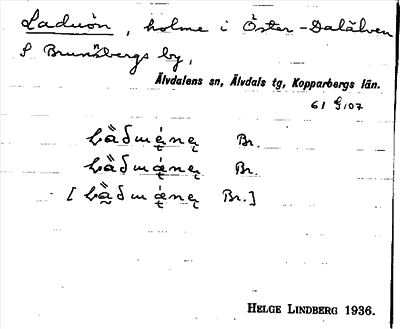 Laduön, holme i Öster-Dalälven
S Brunnsbergs by,
Älvdalens sn, Älvdals tg, Kopparbergs län.
61 G:07
Br.
Br.
Br.]
HELGE LINDBERG 1936.